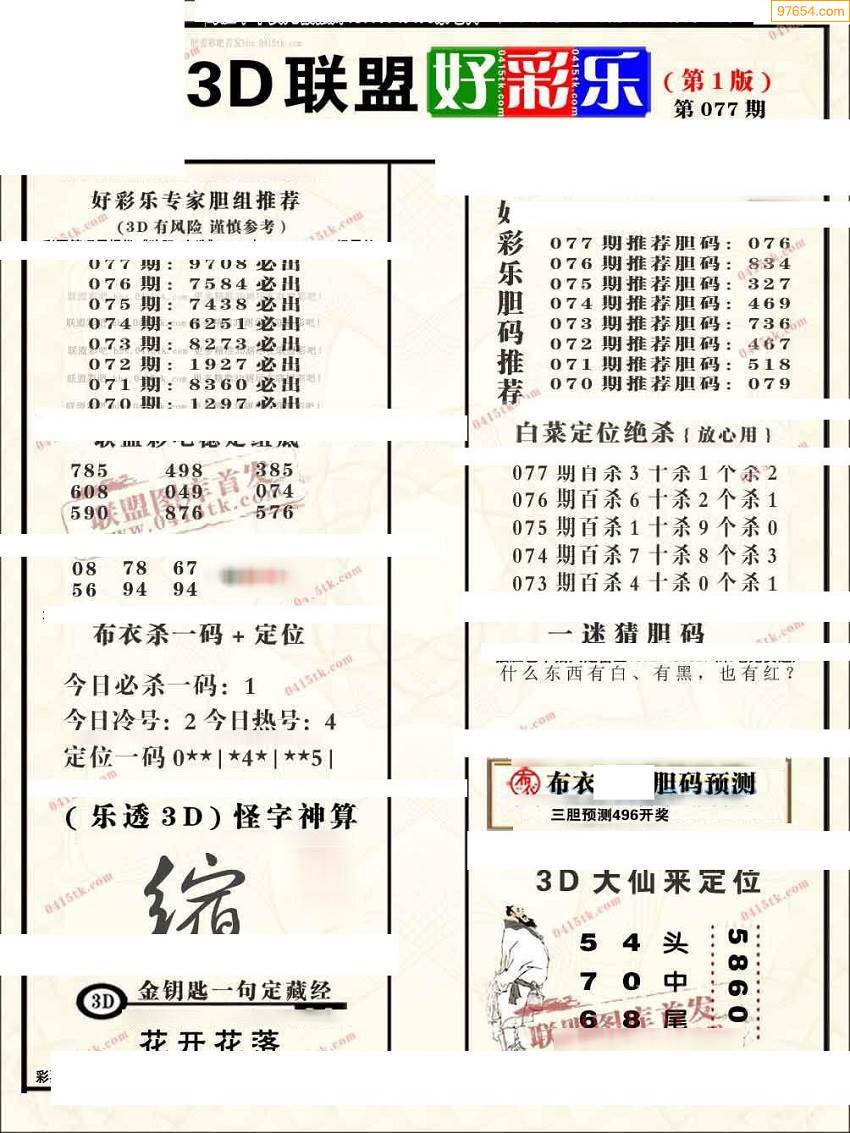 97654.com
3D联盟好彩乐
(第1版)
第077期
好彩乐专家胆组推荐
(3D有风险 谨慎参考)
077期:9708必出
076期:7584必出
075期:7438必出
074期:6251必出
073期:8273必出
072期:1927必出
071期:8360必出
070期:1297必出
785 498 385
608 049 074
590 876 576
联盟图库首发
www.0415tk.com
08 78 67
56 94 94
布衣杀一码+定位
今日必杀一码:1
今日冷号:2 今日热号:4
定位一码 0**|*4*|**5|
(乐透3D)怪字神算
缩
3D 金钥匙一句定藏经
花开花落
彩乐胆码推荐
077期推荐胆码:076
076期推荐胆码:834
075期推荐胆码:327
074期推荐胆码:469
073期推荐胆码:736
072期推荐胆码:467
071期推荐胆码:518
070期推荐胆码:079
白菜定位绝杀{放心用}
077期百杀3十杀1个杀2
076期百杀6十杀2个杀1
075期百杀1十杀9个杀0
074期百杀7十杀8个杀3
073期百杀4十杀0个杀1
一迷猜胆码
什么东西有白、有黑,也有红?
布衣 胆码预测
三胆预测496开奖
3D大仙来定位
5 4 头
7 0 中
6 8 尾
5860
联盟图库首发
0415tk.com